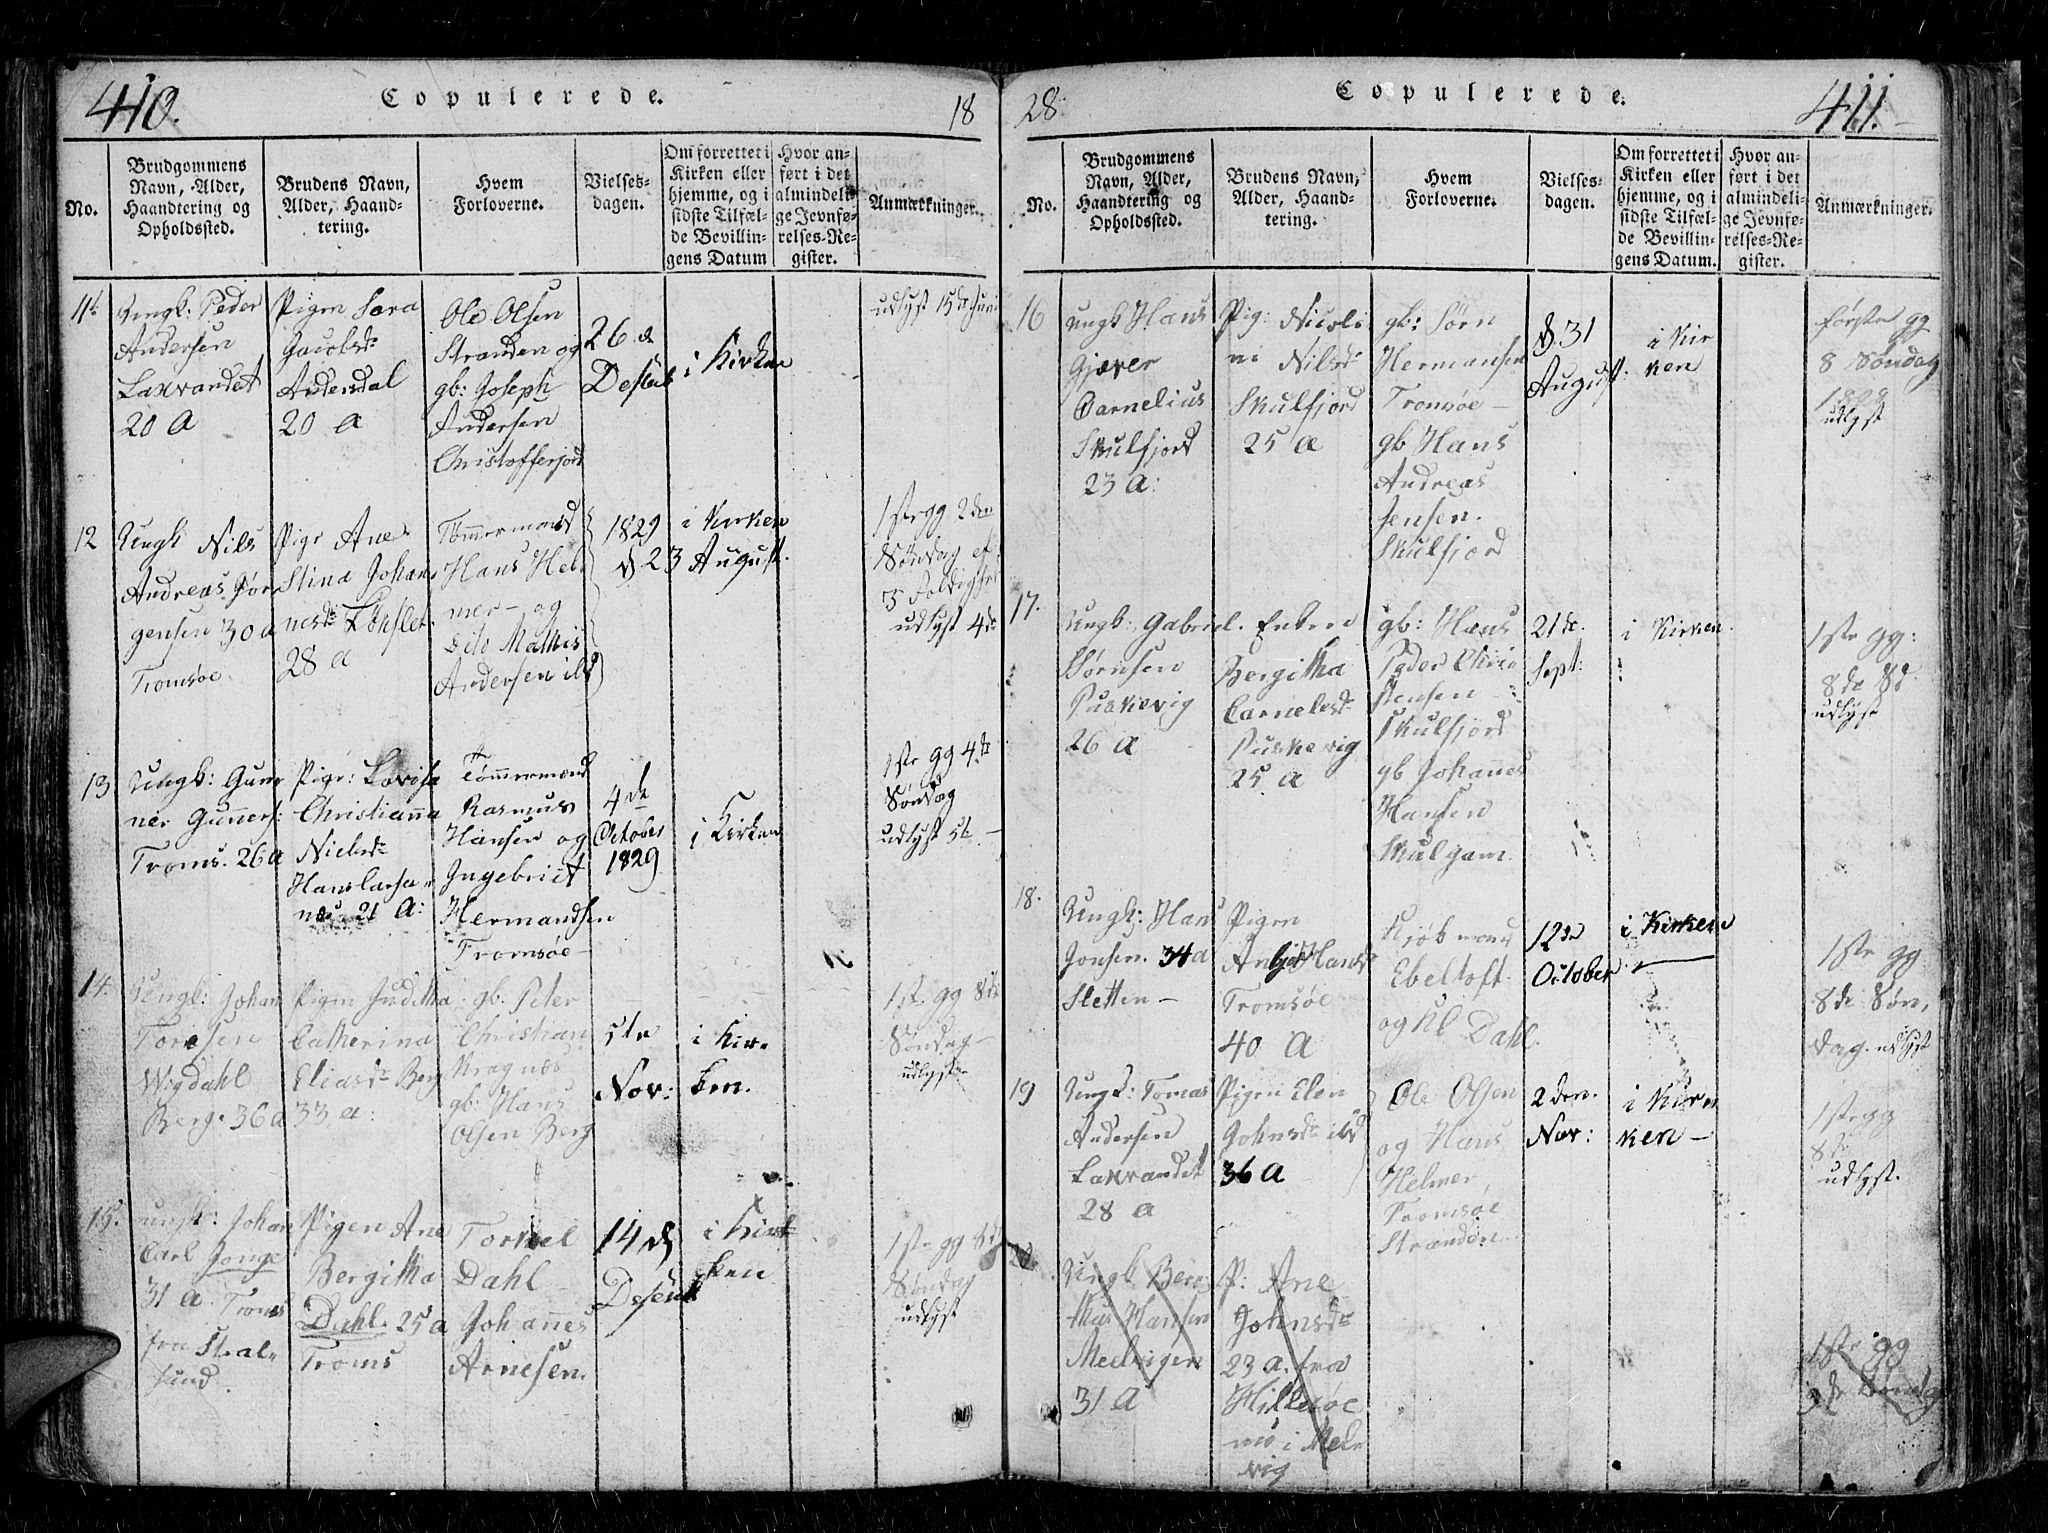 410.
Copulerede.
18
No.
Brudgommens
Navn, Alder,
Haandtering og
Opholdssted.
Brudens Navn,
Alder, Haand-
tering.
Hvem
Forloverne.
Vielses-
dagen.
Om forrettet i
Kirken eller
hjemme, og i
sidste Tilfæl-
de Bevillin-
gens Datum
Hvor an-
ført i det
almindeli-
ge Jevnfø-
relses-Re-
gister.
Anmærkninger.
11
Ungk: Peder
Andersen
Laxvandet
20 A
Pigen Sara
Jacobsd
Andersdal
20 a
Ole Olsen
Stranden og
gb: Joseph
Andersen
Christofferjord
26 d
i Kirken
udlyst 15 de Juni
12
Ungk Nils
Andreas Jør
gensen 30 a
Tromsøe
Pige Ane
Stina Johan
nesd
28 a
Tømmermand
Hans Hel
mer - og
Dito Mathis
Andersen ibd
1829
d 23 August.
i Kirken
1ste gg 2den
Søndag ef
3 foldigh
udlyst 4de
13
Ungk: Gun
ner Gunners:
Troms. 26 a
Pige: Lovisa
Christianna
Nielsd
Hanslarsa
næs 21 A:
Tømmermand
Rasmus
Hansen og
Ingebrict
Hermandsen
Tromsøe
4 de
October
1829
i Kirken
1ste gg 4de
Søndag
udlyst 5te
14.
Ungk: Johan
Toresen
Wigdahl
Berg. 36 a
Pigen Juditha
Catherina
Eliasd Berg
33 a:
gb: Peter
Christian
Kragnæs
gb: Hans
Olsen Berg
5te
Nov:
i Kir
ken.
1ste gg 8de
Søndag
udlyst
15.
ungk: Johan
Carl Jonge
31 a. Troms
fra Stral
sund.
Pigen Ane
Bergitha
Dahl. 25 a
Troms
Torkel
Dahl
Johannes
Arnesen.
14 d
i Kir
ken
1ste gg 8de
Søndag
udlyst
28.
Copulerede.
411.
No.
Brudgommens
Navn, Alder,
Haandtering og
Opholdssted.
Brudens Navn,
Alder, Haand-
tering.
Hvem
Forloverne.
Vielses-
dagen.
Om forrettet i
Kirken eller
hjemme, og i
sidste Tilfæl-
de Bevillin-
gens Datum.
Hvor an-
ført i det
almindeli-
ge Jevnfø-
relses-Re-
gister.
Anmærkninger.
16
Ungk Hans
Gjæver
Carnelius
Skulfjord
23 A:
Pig: Nicoli
ne Nilsd
Skulfjord
25 a
gb: Sørn
Hermansen
Tromsøe
gb Hans
Andreas
Jensen.
Skulfjord
d 31
August:
i Kir
ken
første gg
8 Søndag
1828
udlyst
17.
Ungk: Gabriel
Sørnsen
Puskevig
26 a
Enken
Bergitha
Carnelsd
Puskevig
25 a
gb: Hans
Peder Chri
stensen
Skulfjord
gb Johannes
Hansen
Skulgam
21 de.
Sept:
i Kirken.
1ste gg:
8de Sd
udlyst
18.
Ungk: Hans
Jonsen. 34 a
Sletten
Pigen
Hansd
Tromsøe
40 A
Kjøbmand
Ebeltoft
og Kl Dahl.
12te
October
i Kirken
1ste gg
8de Søn,
dag. udlyst
19
Ungk: Tomas
Andersen
Laxvandet
28 a
Pigen Elen
Johnsd ibd
36 A
Ole Olsen
og Hans
Helmer,
Tromsøe
Stranden.
2 den.
Nov:
i Kir
ken
1ste gg
8de
udlyst.
20
Ungk Bern
thus Hansen
Melvigen
31 A
P: Ane
Johnsd
23 a. fra
Hillesøe
nu i Mel
vig
1ste gg